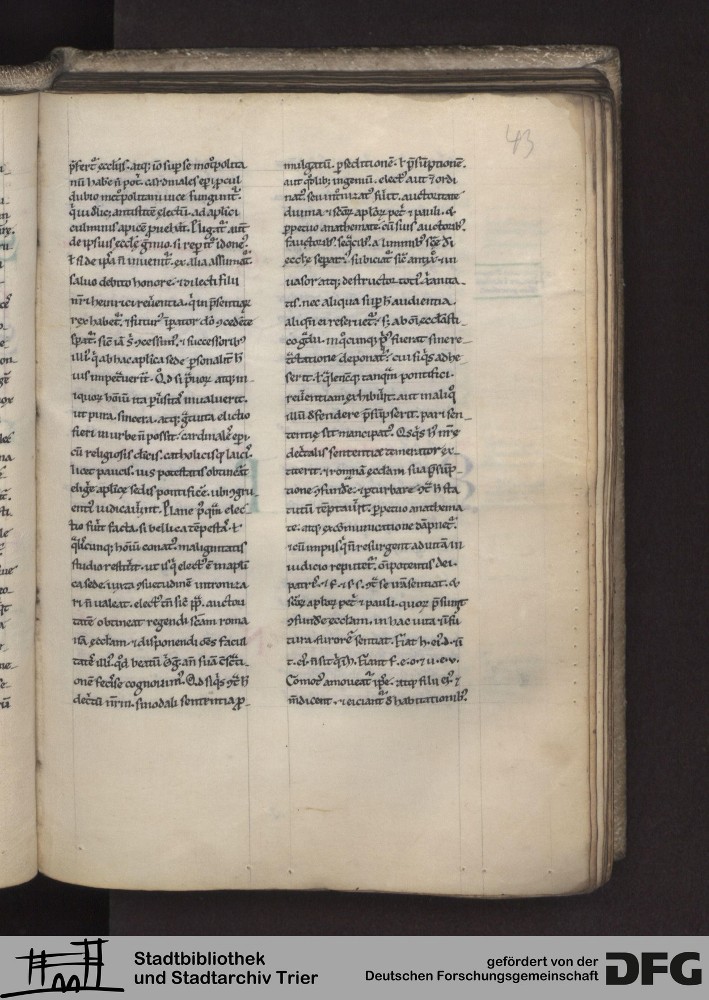 43
p̄ferť ecclijs. atq; iō sup se metͦpolita
nū habe n̄ pot. cardinales epī. pcul
dubio metͦpolitani uice fungūtˀ.
culminis apicē puehāt.
de ipsius eccłe gmio. si repˀitˀ idoneˀ.
ł si de ipa n̄ inuenitˀ. ex alia assumatˀ
saluo debito honore. ⁊ dilecti filii
nr̄i heinrici reuerentia. q̇ in p̄sentiaꝝ
rex habetˀ. ⁊ futurˀ īpator dō ꝯcedēte
spatˀ. sic iā ꝯcessimˀ. ⁊ successoribˀ
illiˀ. q̇ ab hac aplica sede psonalitˀ h̄
ius impetˀuerīt. Qd si prauoꝝ atq; in
iquoꝝ hoīū ita puˀsitas inualuerit.
ut pura. sincera. atq; gtuita electio
fieri in urbe n̄ possit. cardinales epī.
cū religiosis clicis. catholicisq; laicˀ.
licet paucis. ius potestatis obtineāt
eligˀe aplice sedis pontificē. ubi ꝯgru
entiˀ iudicauˀint. Plane pˀqm elec
tio fuit facta. si bellica tēpestas. ł
q̄licunq; hoīū conatˀ malignitatis
studio restitˀit. ut is q̇ electˀ ē in apli
ca sede. iuxta ꝯsuetudinē introniza
ri n̄ ualeat. electˀ tn̄ sic pp̄. auctori
tatē obtineat regendi scām roma
nā ecclam. ⁊ disponendi oēs facul
tatē illiˀ. qd beatū Gg. an̄ suā ꝯsecͣti
onē fecisse cognouimˀ. Qd siq̇s ꝯtˣ h̄
decˀtū nr̄m. sinodali sententia ꝓ
mulgatū. p seditionē. ł p̄sūptionē.
aut q̇libꝫ ingeniū. electˀ aut ⁊ ordi
natˀ. seu intͦnizatˀ fuˀit. auctoritate
diuina. ⁊ scōꝝ aploꝝ petˀ ⁊ pauli. ⁊
ppetuo anathemate. cū suis auctoribˀ.
fautoribˀ. seq̇cibˀ. a liminibˀ scē dī
ecclˀ sepatˀ. subiciatˀ sic antixˀ ⁊ in
uasor atq; destructor totiˀ xˀianita
tis. nec aliqua supˀ h̄ audientia.
aliqn̄ ei reseruetˀ. sꝫ ab oī ecclāsti
co gdu. in q̊cunq; pˀ fuerat sine re
tͣctatione deponatˀ. cui siq̇s adhe
serit. ł q̄lēcūq; tanqm pontifici.
reuˀentiam exhibuˀit. aut in aliq̊
illū dˀfendere p̄sūpserit. pari sen
tentie sit mancipatˀ. Qsq̇s h̄ nrē
decˀtalis sententie temerator ex
titerit. ⁊ romanā ecclam sua p̄sūp
tione ꝯfundˀe. ⁊ pturbare ꝯtˣ h̄ sta
tutū tēptauˀit. ppetuo anathema
te. atq; excōmunicatione dāpnetˀ.
⁊ cū impiis. q̇ n̄ resurgent ad uitā in
iudicio reputetˀ. oīpotentis dei.
patrˀ. ⁊ f. ⁊ s. s. ꝯtˣ se iram sentiat. ⁊
scōꝝ aploꝝ petˀ ⁊ pauli. quoꝝ p̄sumit
ꝯfundˀe ecclam. in hac uita ⁊ in fu
tura. furorē sentiat. Fiat h. eiˀ d. ⁊ i
t. eˀ. n̄ sit q̇ i h. Fiant f. e. o. ⁊ u. e. v.
Comotˀ amoueatˀ ipse. atq; filii eiˀ. ⁊
mdicent. ⁊ eiciantˀ dˀ habitationibˀ.
Stadtbibliothek
und Stadtarchiv Trier
gefördert von der
Deutschen Forschungsgemeinschaft
DFG